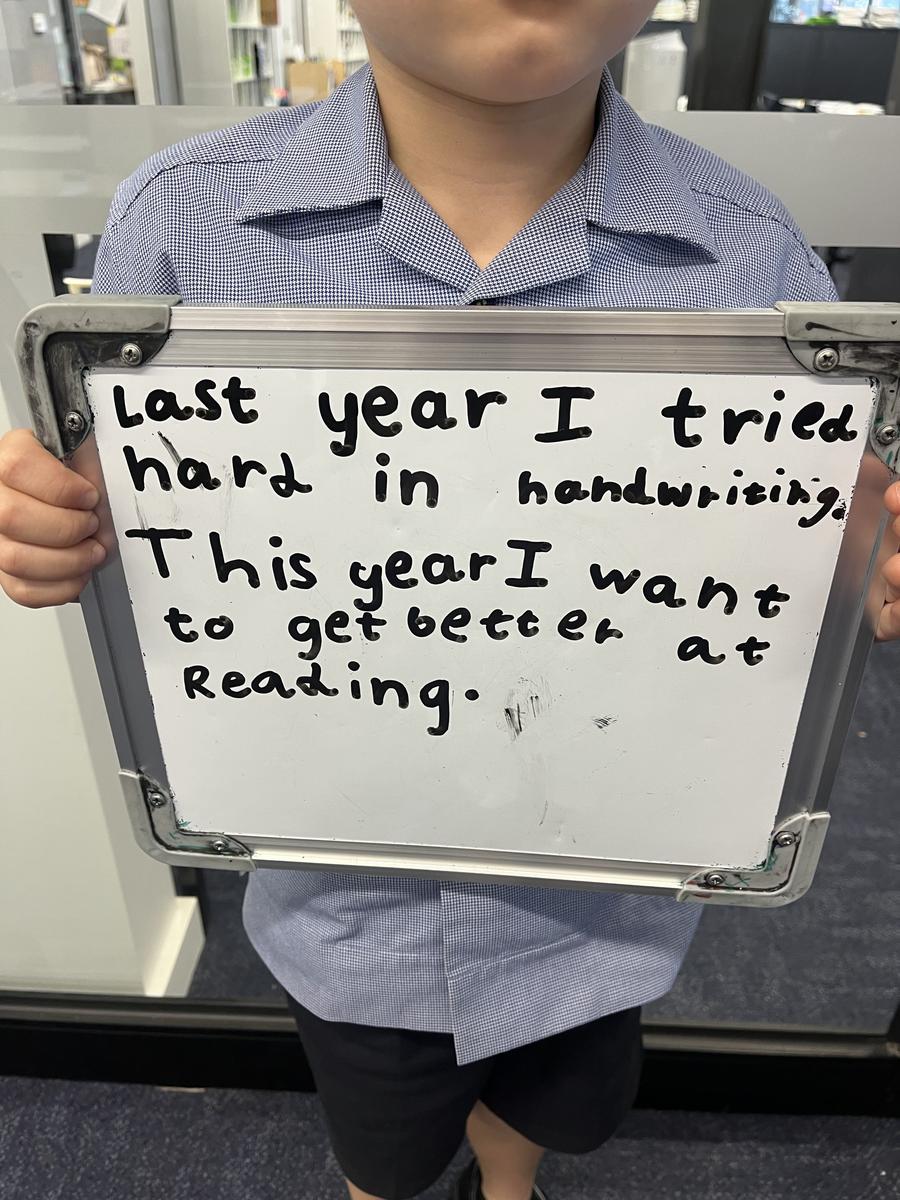 Last year I tried
hard in handwriting.
This year I want
to get better at
Reading.